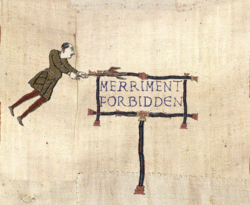 MERRIMENT
FORBIDDEN